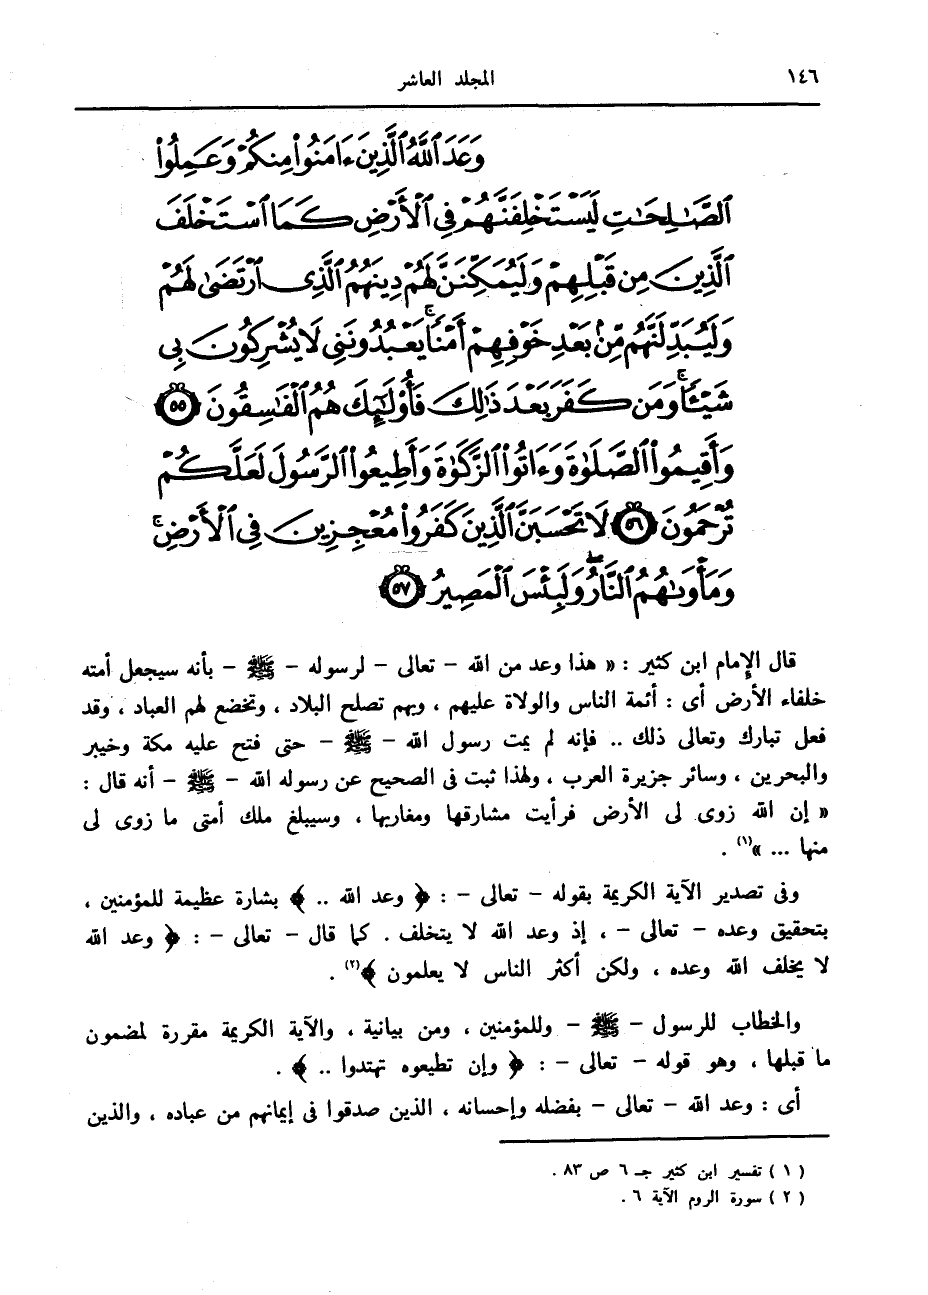 ١٤٦
المجلد العاشر
وَعَدَ ٱللَّهُ ٱلَّذِينَ ءَامَنُوا۟ مِنكُمْ وَعَمِلُوا۟
ٱلصَّـٰلِحَـٰتِ لَيَسْتَخْلِفَنَّهُمْ فِى ٱلْأَرْضِ كَمَا ٱسْتَخْلَفَ
ٱلَّذِينَ مِن قَبْلِهِمْ وَلَيُمَكِّنَنَّ لَهُمْ دِينَهُمُ ٱلَّذِى ٱرْتَضَىٰ لَهُمْ
وَلَيُبَدِّلَنَّهُم مِّنۢ بَعْدِ خَوْفِهِمْ أَمْنًا ۚ يَعْبُدُونَنِى لَا يُشْرِكُونَ بِى
شَيْـًٔا ۚ وَمَن كَفَرَ بَعْدَ ذَٰلِكَ فَأُو۟لَـٰٓئِكَ هُمُ ٱلْفَـٰسِقُونَ ٥٥
وَأَقِيمُوا۟ ٱلصَّلَوٰةَ وَءَاتُوا۟ ٱلزَّكَوٰةَ وَأَطِيعُوا۟ ٱلرَّسُولَ لَعَلَّكُمْ
تُرْحَمُونَ ٥٦ لَا تَحْسَبَنَّ ٱلَّذِينَ كَفَرُوا۟ مُعْجِزِينَ فِى ٱلْأَرْضِ ۚ
وَمَأْوَىٰهُمُ ٱلنَّارُ ۖ وَلَبِئْسَ ٱلْمَصِيرُ ٥٧
قال الإِمام ابن كثير : « هذا وعد من الله – تعالى – لرسوله – ﷺ – بأنه سيجعل أمته
خلفاء الأرض أى : أئمة الناس والولاة عليهم ، وبهم تصلح البلاد ، وتخضع لهم العباد ، وقد
فعل تبارك وتعالى ذلك .. فإنه لم يمت رسول الله – ﷺ – حتى فتح عليه مكة وخيبر
والبحرين ، وسائر جزيرة العرب ، ولهذا ثبت فى الصحيح عن رسوله الله – ﷺ – أنه قال :
« إن الله زوى لى الأرض فرأيت مشارقها ومغاربها ، وسيبلغ ملك أمتى ما زوى لى
منها ... »(١) .
وفى تصدير الآية الكريمة بقوله – تعالى – : ﴿ وعد الله .. ﴾ بشارة عظيمة للمؤمنين ،
بتحقيق وعده – تعالى – ، إذ وعد الله لا يتخلف . كما قال – تعالى – : ﴿ وعد الله
لا يخلف الله وعده ، ولكن أكثر الناس لا يعلمون ﴾(٢) .
والخطاب للرسول – ﷺ – وللمؤمنين ، ومن بيانية ، والآية الكريمة مقررة لمضمون
ما قبلها ، وهو قوله – تعالى – : ﴿ وإن تطيعوه تهتدوا .. ﴾ .
أى : وعد الله – تعالى – بفضله وإحسانه ، الذين صدقوا فى إيمانهم من عباده ، والذين
( ١ ) تفسير ابن كثير جـ ٦ ص ٨٣ .
( ٢ ) سورة الروم الآية ٦ .